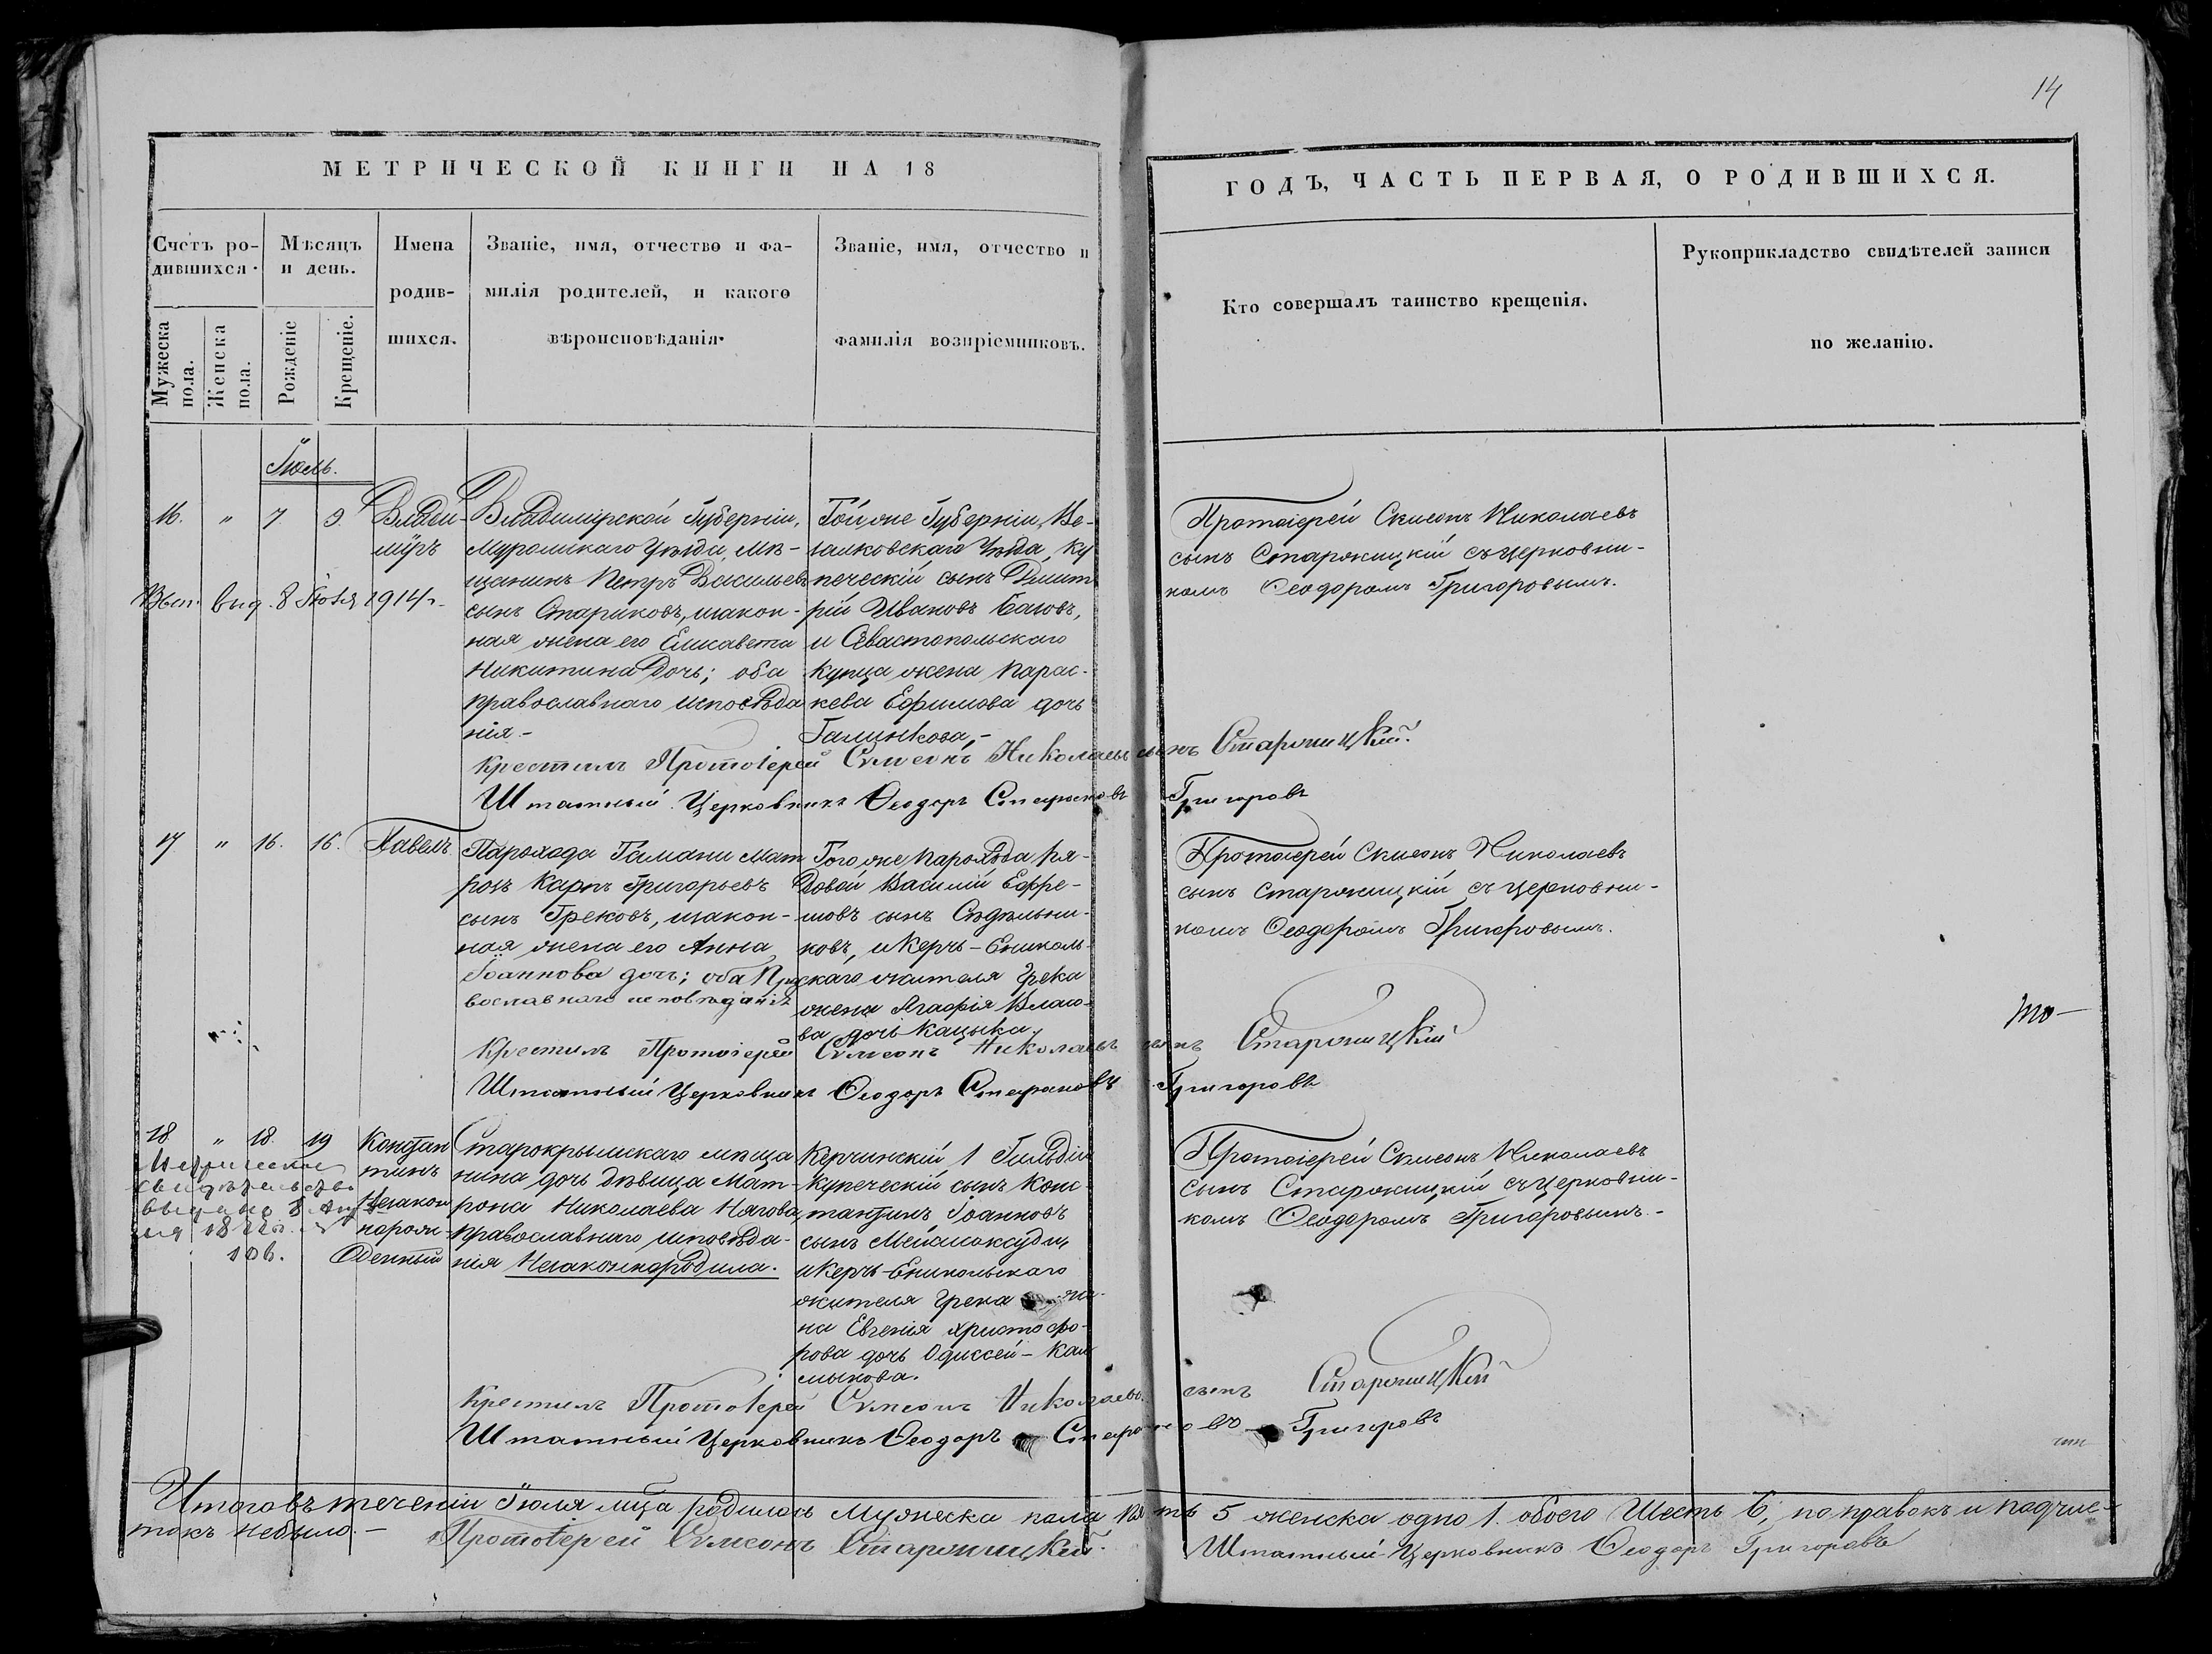 14
МЕТРИЧЕСКОЙ КНИГИ НА 18
ГОДЪ, ЧАСТЬ ПЕРВАЯ, О РОДИВШИХСЯ.
Счетъ ро-
дившихся.
Мужеска пола.
Женска пола.
Мѣсяцъ
и день.
Рожденіе
Крещеніе.
Имена
родив-
шихся.
Званіе, имя, отчество и фа-
милія родителей, и какого
вѣроисповѣданія.
Званіе, имя, отчество и
фамилія воспріемниковъ.
Кто совершалъ таинство крещенія.
Рукоприкладство свидѣтелей записи
по желанію.
Іюль.
16. " 7. 9. Влади-
міръ
вид. 8 Іюля 1914 г.
Владимірской Губерніи,
Муромскаго Уѣзда, мѣ-
щанинъ Петръ Васильевъ
сынъ Стариковъ, закон-
ная жена его Елисавета
Никитина дочь; оба
православнаго исповѣда
нія -
Той же Губерніи,
Уѣзда, ку
печескій сынъ Дмит
рій Ивановъ
и Севастопольскаго
купца жена Парас-
кева Ефимова дочь
Галинкова, -
Протоіерей Симеонъ Николаевъ
сынъ Старожицкій съ церковни-
комъ Ѳеодоромъ Григоровымъ.
Крестилъ Протоіерей Симеонъ Николаевъ сынъ Старожицкій.
Штатный Церковникъ Ѳеодоръ Стефановъ Григоровъ
17 " 16. 16. Павелъ
Парохода Тамани мат
розъ Карпъ Григорьевъ
сынъ Грековъ, закон-
ная жена его Анна
Іоаннова дочь; оба Пра
вославнаго исповѣданія
Того же парохода, ря-
довой Василій Ефре-
мовъ сынъ Сѣдельни-
ковъ, и Керчь-Ениколь-
скаго жителя Грека
жена Агафія Власо-
ва дочь Кацыка.
Протоіерей Симеонъ Николаевъ
сынъ Старожицкій съ церковни-
комъ Ѳеодоромъ Григоровымъ.
Крестилъ Протоіерей Симеонъ Николаевъ сынъ Старожицкій
Штатный Церковникъ Ѳеодоръ Стефановъ Григоровъ
18. " 18. 19 Констан
тинъ
Незакон
норож-
денный
Метрическое
свидѣтельство
выдано 8
106.
Старокрымскаго мѣща
нина дочь дѣвица Мат-
рона Николаева Нягова,
православнаго исповѣда-
нія Незаконнородила.
Керчинскій 1 Гильдіи
купеческій сынъ Конс-
тантинъ Іоанновъ
сынъ
и Керчь-Еникольскаго
жителя Грека же-
на Евгенія Христофо-
рова дочь Одиссей-Кал
мыкова.
Протоіерей Симеонъ Николаевъ
сынъ Старожицкій съ церковни-
комъ Ѳеодоромъ Григоровымъ. -
Крестилъ Протоіерей Симеонъ Николаевъ сынъ Старожицкій
Штатный Церковникъ Ѳеодоръ Стефановъ Григоровъ
Итого въ теченіи Іюля мца родилось Мужеска пола пять 5 женска одно 1. обоего Шесть 6, поправокъ и подчис-
токъ небыло. -
Протоіерей Симеонъ Старожицкій.
Штатный Церковникъ Ѳеодоръ Григоровъ